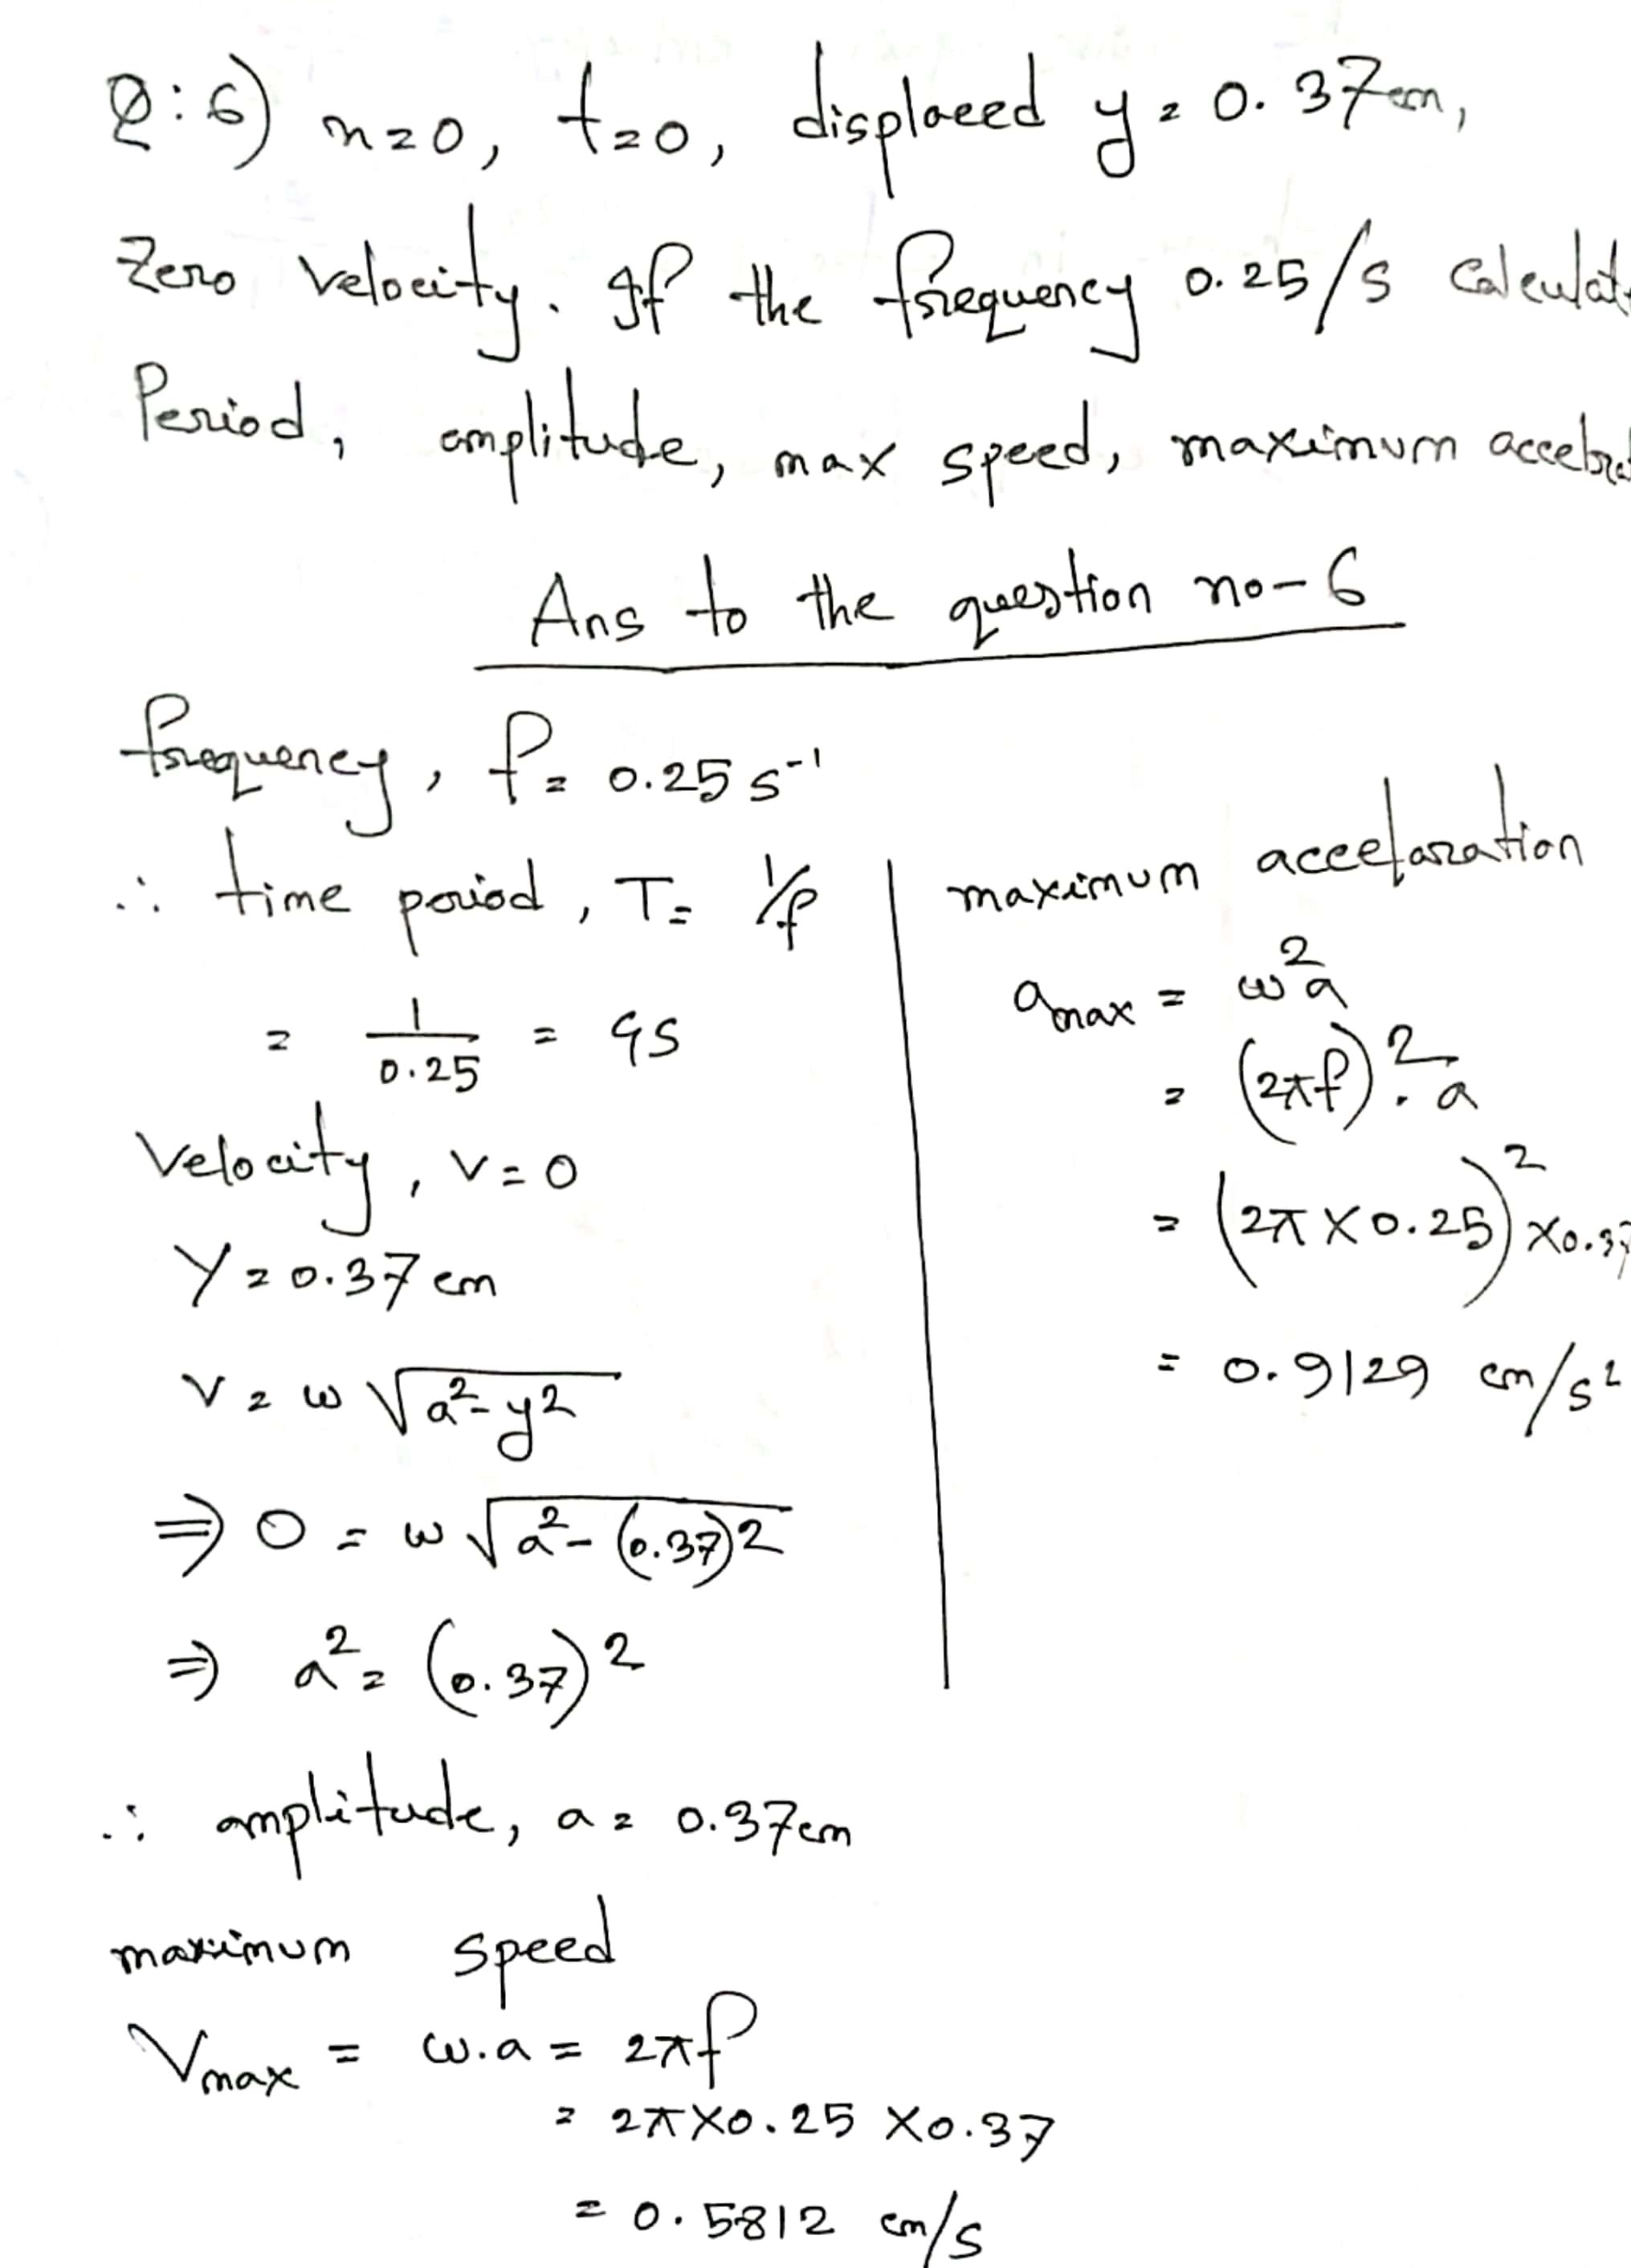 Q:6) x=0, t=0, displaced y = 0.37cm,
Zero velocity. If the frequency 0.25/s Calculat
Period, amplitude, max speed, maximum accelra
Ans to the question no-6
frequency, f = 0.25 s⁻¹
∴ time period, T = 1/f
= 1/0.25 = 4s
Velocity, v=0
Y = 0.37 cm
v = ω √(a²-y²)
⇒ 0 = ω √(a²-(0.37)2)
⇒ a² = (0.37)²
∴ amplitude, a = 0.37cm
maximum speed
Vmax = ω.a = 2πf
= 2π×0.25 ×0.37
= 0.5812 cm/s
maximum accelaration
amax = ω²a
= (2πf)². a
= (2π×0.25)²×0.37
= 0.9129 cm/s²